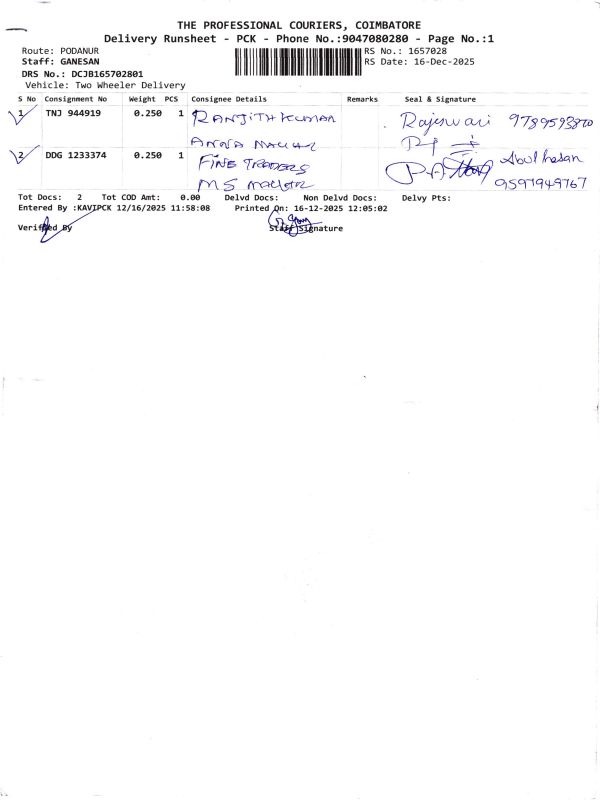 THE PROFESSIONAL COURIERS, COIMBATORE
Delivery Runsheet - PCK - Phone No.:9047080280 - Page No.:1
Route: PODANUR RS No.: 1657028
Staff: GANESAN RS Date: 16-Dec-2025
DRS No.: DCJB165702801
Vehicle: Two Wheeler Delivery
S No Consignment No Weight PCS Consignee Details Remarks Seal & Signature
1 TNJ 944919 0.250 1 RANJITH KUMAR Rajeswari
ANNA NAGAR
2 DDG 1233374 0.250 1 FINE TRADERS Abul hasan
MS 9597949767
Tot Docs: 2 Tot COD Amt: 0.00 Delvd Docs: Non Delvd Docs: Delvy Pts:
Entered By :KAVIPCK 12/16/2025 11:58:08 Printed On: 16-12-2025 12:05:02
Verified By Staff Signature